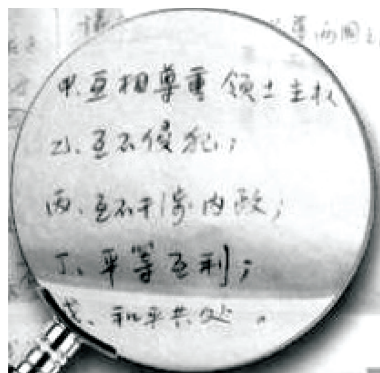 甲、互相尊重领土主权
乙、互不侵犯；
丙、互不干涉内政；
丁、平等互利；
戊、和平共处。